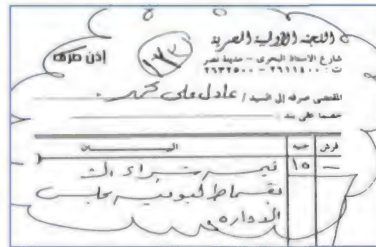 اللجنة الأولمبية المصرية
شارع الاستاذ البحرى - مدينة نصر
ت : ٢٦١١٤٠٠ - ٢٦٣٢٥٠٠
إذن صرف
١٣٢
المقتضى صرفه إلى السيد / عادل على محمد
خصما على بند :
قرش جنيه البيــــــان
— ١٥ قيمة شراء
بقسماط لبوفيه مجلس
الادارة.